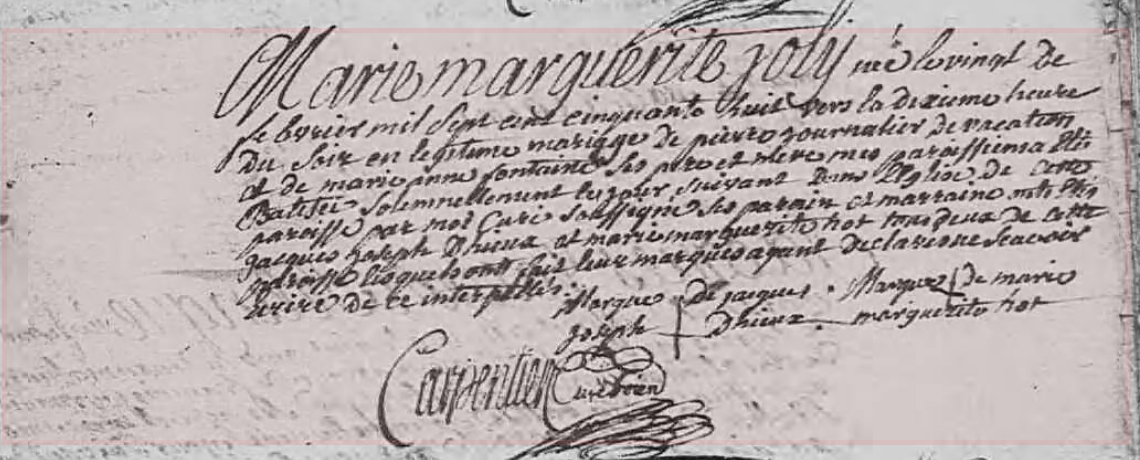 Marie marguerite Joly née le vingt de
febvrier mil sept cent cinquante huit vers la dixieme heure
Du soir en legitime mariage de pierre journalier de vacation
et de marie anne fontaine ses pere et mere mes paroissiens a été
Batisée solemnellement le jour suivant Dans l'Eglise de cette
paroisse par moi Curé soussigné ses parain et marraine ont été
jacques Joseph Dhieux et marie marguerite hot tous deux de cette
paroisse lesquels ont fait leur marques ayant declare ne scavoir
écrire de ce interpellés.
Marque de jacques . Marque de marie
Joseph Dhieux . marguerite hot
Carpentier Curé